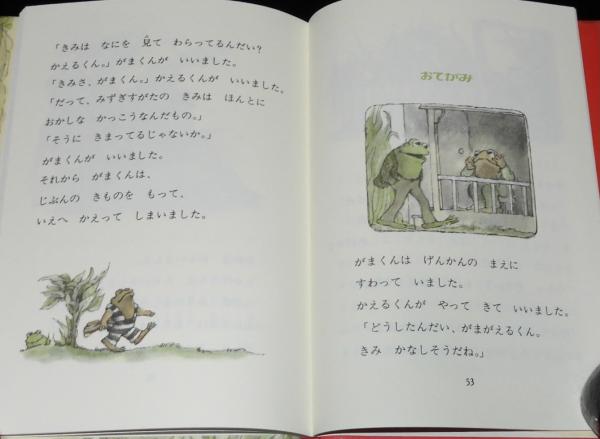 「きみは なにを 見て わらってるんだい?
かえるくん。」がまくんが いいました。
「きみさ、がまくん。」かえるくんが いいました。
「だって、みずぎすがたの きみは ほんとに
おかしな かっこうなんだもの。」
「そうに きまってるじゃないか。」
がまくんが いいました。
それから がまくんは、
じぶんの きものを もって、
いえへ かえって しまいました。
おてがみ
がまくんは げんかんの まえに
すわって いました。
かえるくんが やって きて いいました。
「どうしたんだい、がまがえるくん。
きみ かなしそうだね。」
53